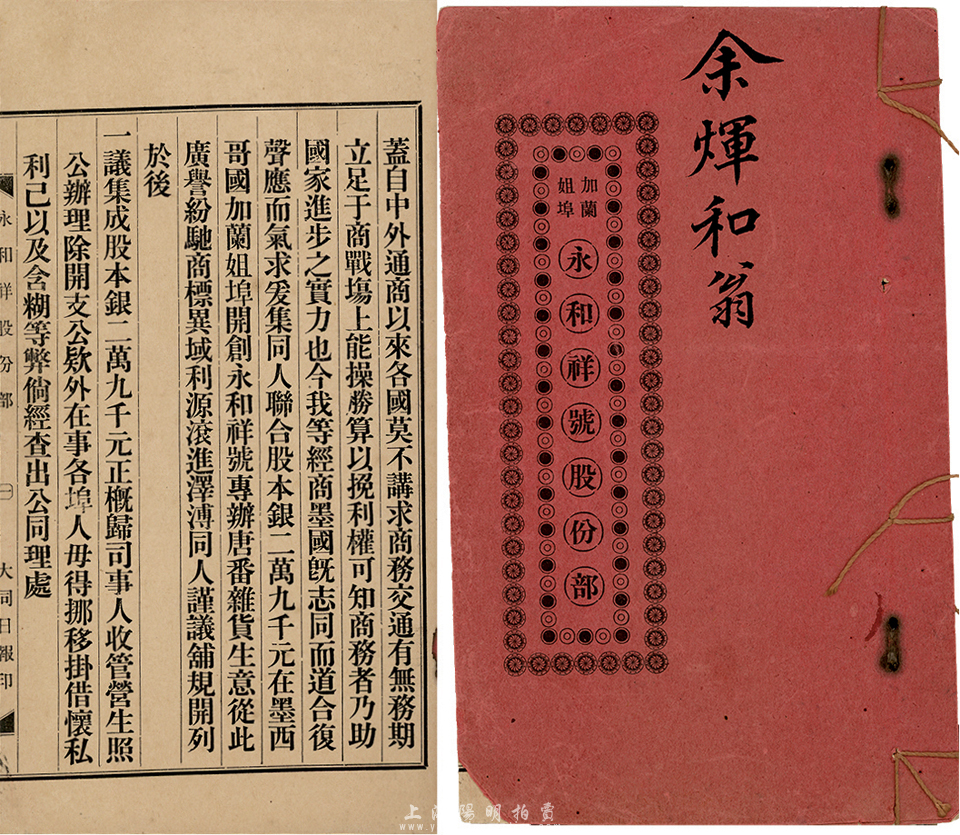 余煇和翁
加蘭
姐埠
永和祥號股份部
蓋自中外通商以來各國莫不講求商務交通有無務期
立足于商戰塲上能操勝算以挽利權可知商務者乃助
國家進步之實力也今我等經商墨國旣志同而道合復
聲應而氣求爰集同人聯合股本銀二萬九千元在墨西
哥國加蘭姐埠開創永和祥號專辦唐番雜貨生意從此
廣譽紛馳商標異域利源滾進澤溥同人謹議舖規開列
於後
一議集成股本銀二萬九千元正概歸司事人收管營生照
公辦理除開支公欵外在事各埠人毋得挪移掛借懷私
利己以及含糊等弊倘經查出公同理處
永和祥股份部
大同日報印
上海陽明拍賣